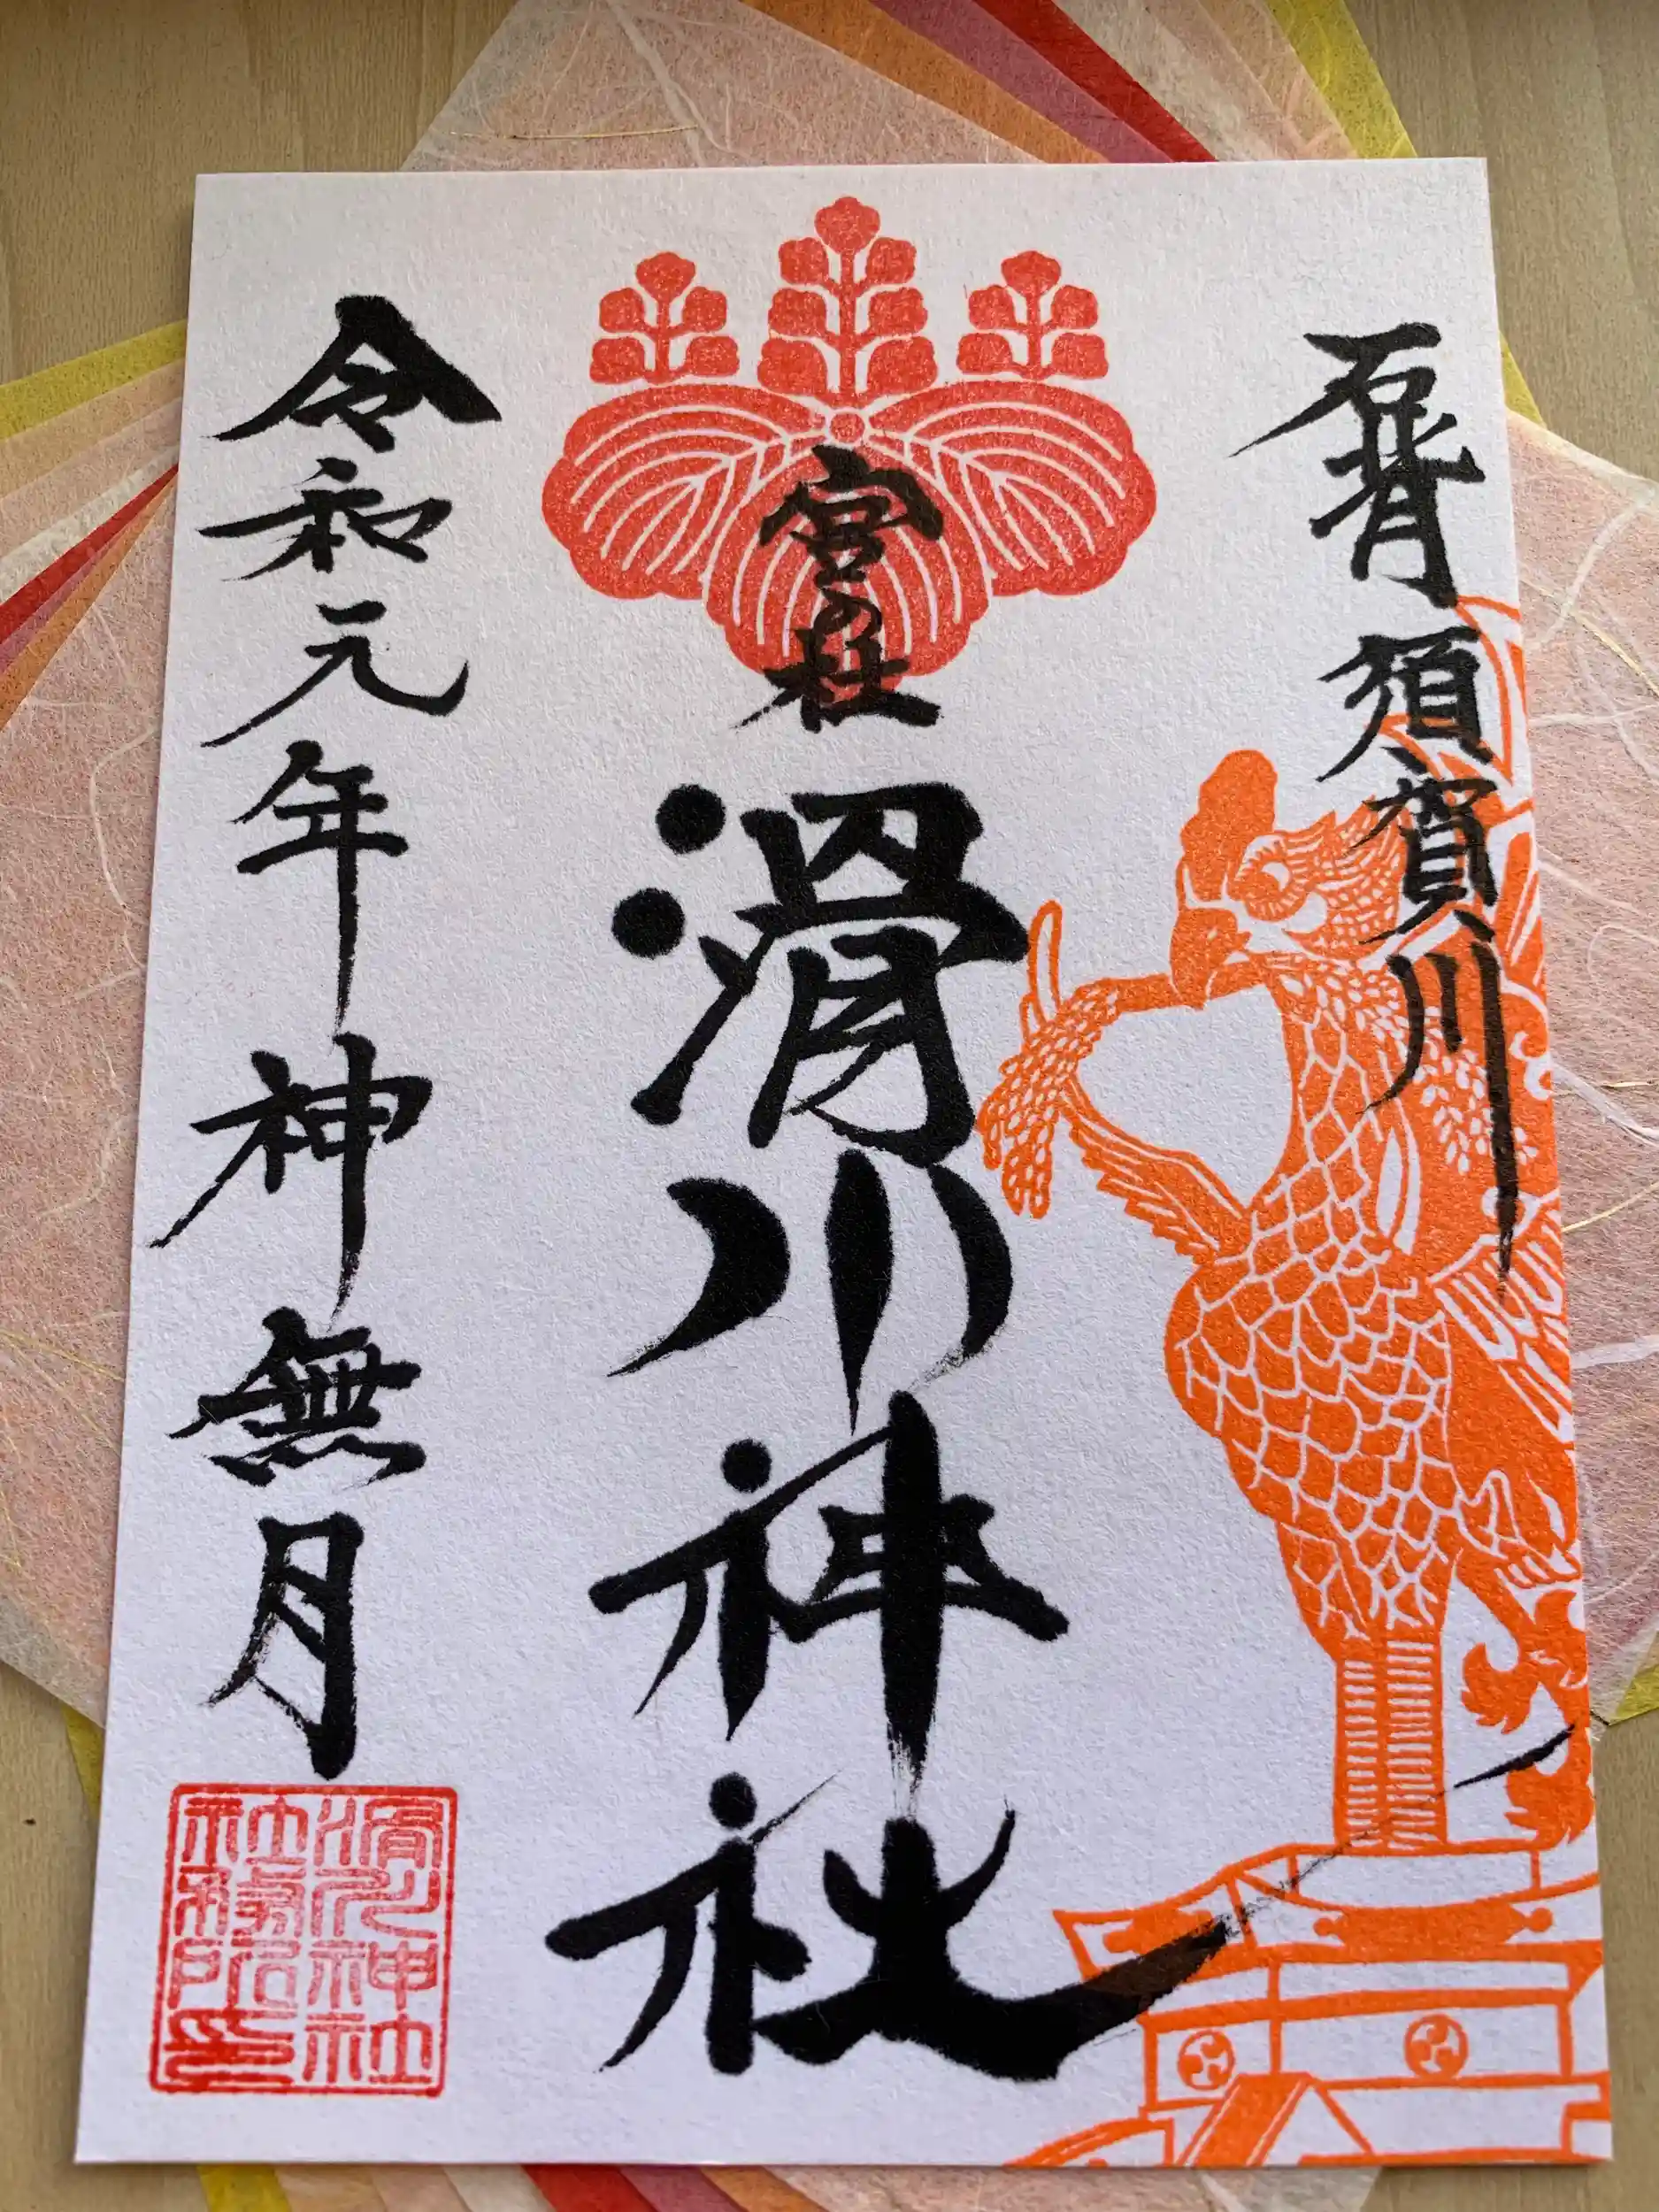 石背 須賀川
宮の杜
滑川神社
令和元年神無月
滑川神社
社務所印